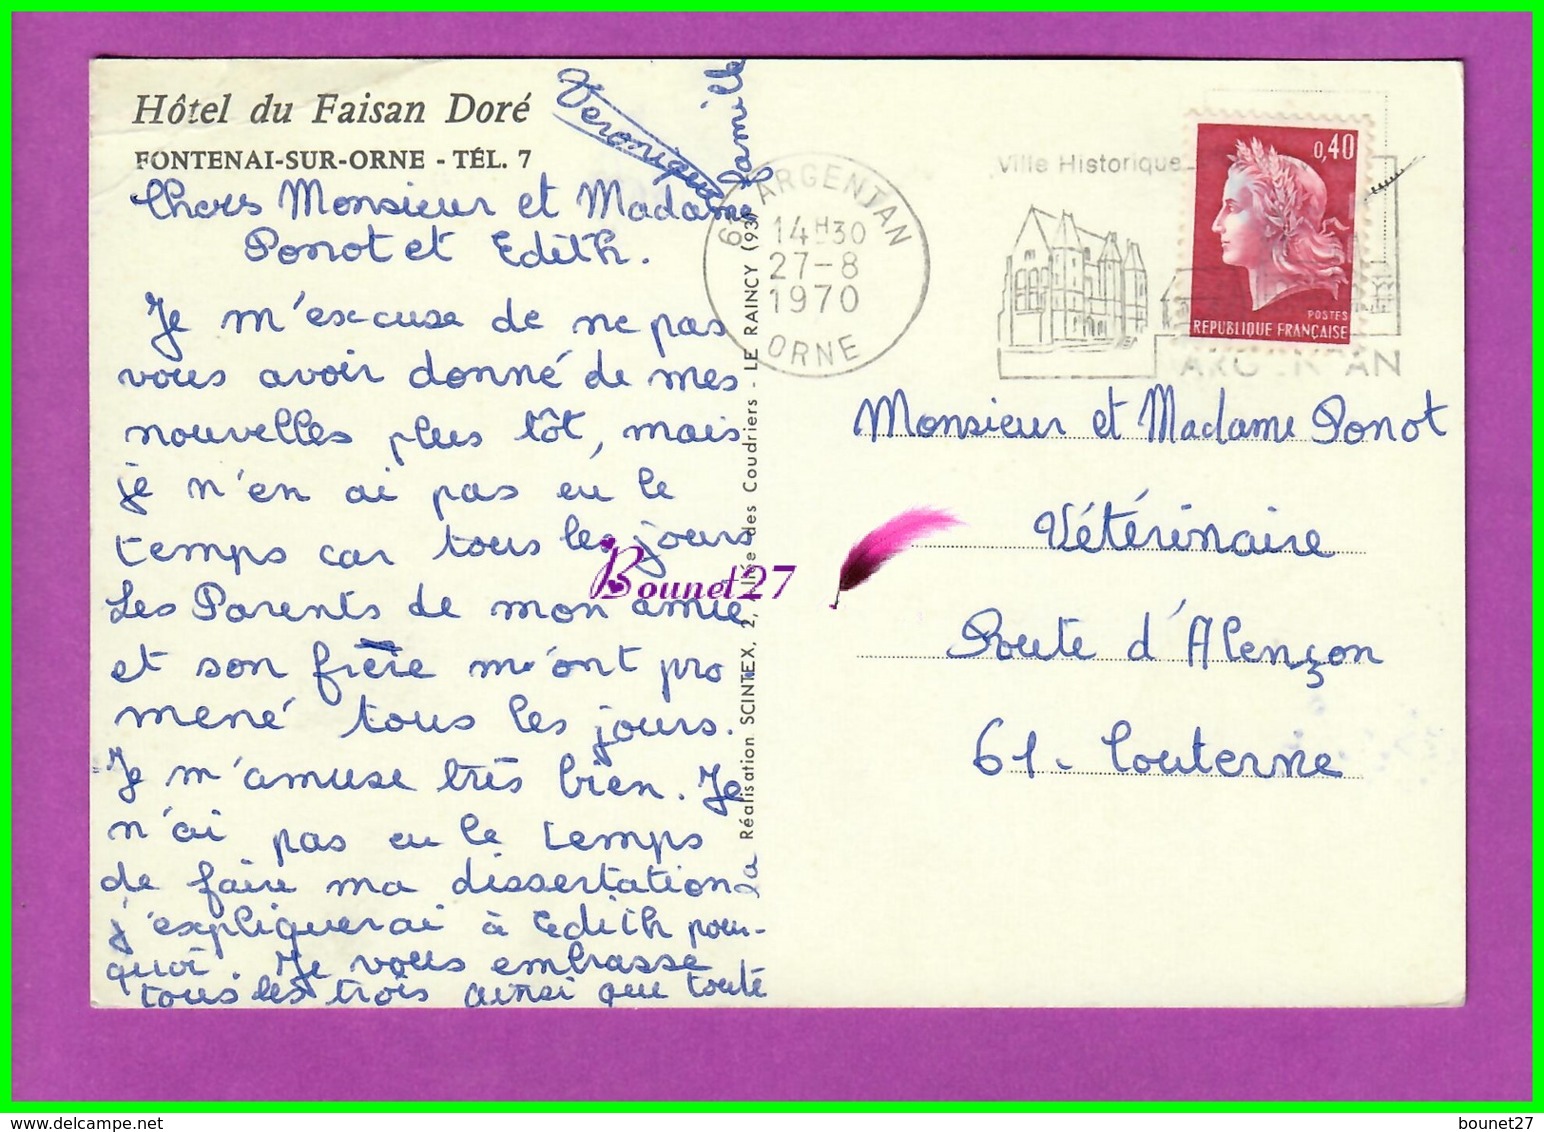 Hôtel du Faisan Doré
FONTENAI-SUR-ORNE - TÉL. 7
Chers Monsieur et Madame
Ponot et Edith.
Je m'excuse de ne pas
vous avoir donné de mes
nouvelles plus tôt, mais
je n'en ai pas eu le
temps car tous les jours
Les Parents de mon amie
et son frère m'ont pro
mené tous les jours.
Je m'amuse très bien. Je
n'ai pas eu le temps
de faire ma dissertation
j'expliquerai à Edith pour-
quoi. Je vous embrasse
tous les trois ainsi que toute
la
famille
Veronique
Réalisation SCINTEX, 2, Allée des Coudriers - LE RAINCY (93)
61 ARGENTAN
14H30
27-8
1970
ORNE
Ville Historique
ARGENTAN
0,40
POSTES
REPUBLIQUE FRANÇAISE
Monsieur et Madame Ponot
Vétérinaire
Route d'Alençon
61. Couterne
Bounet27
bounet27